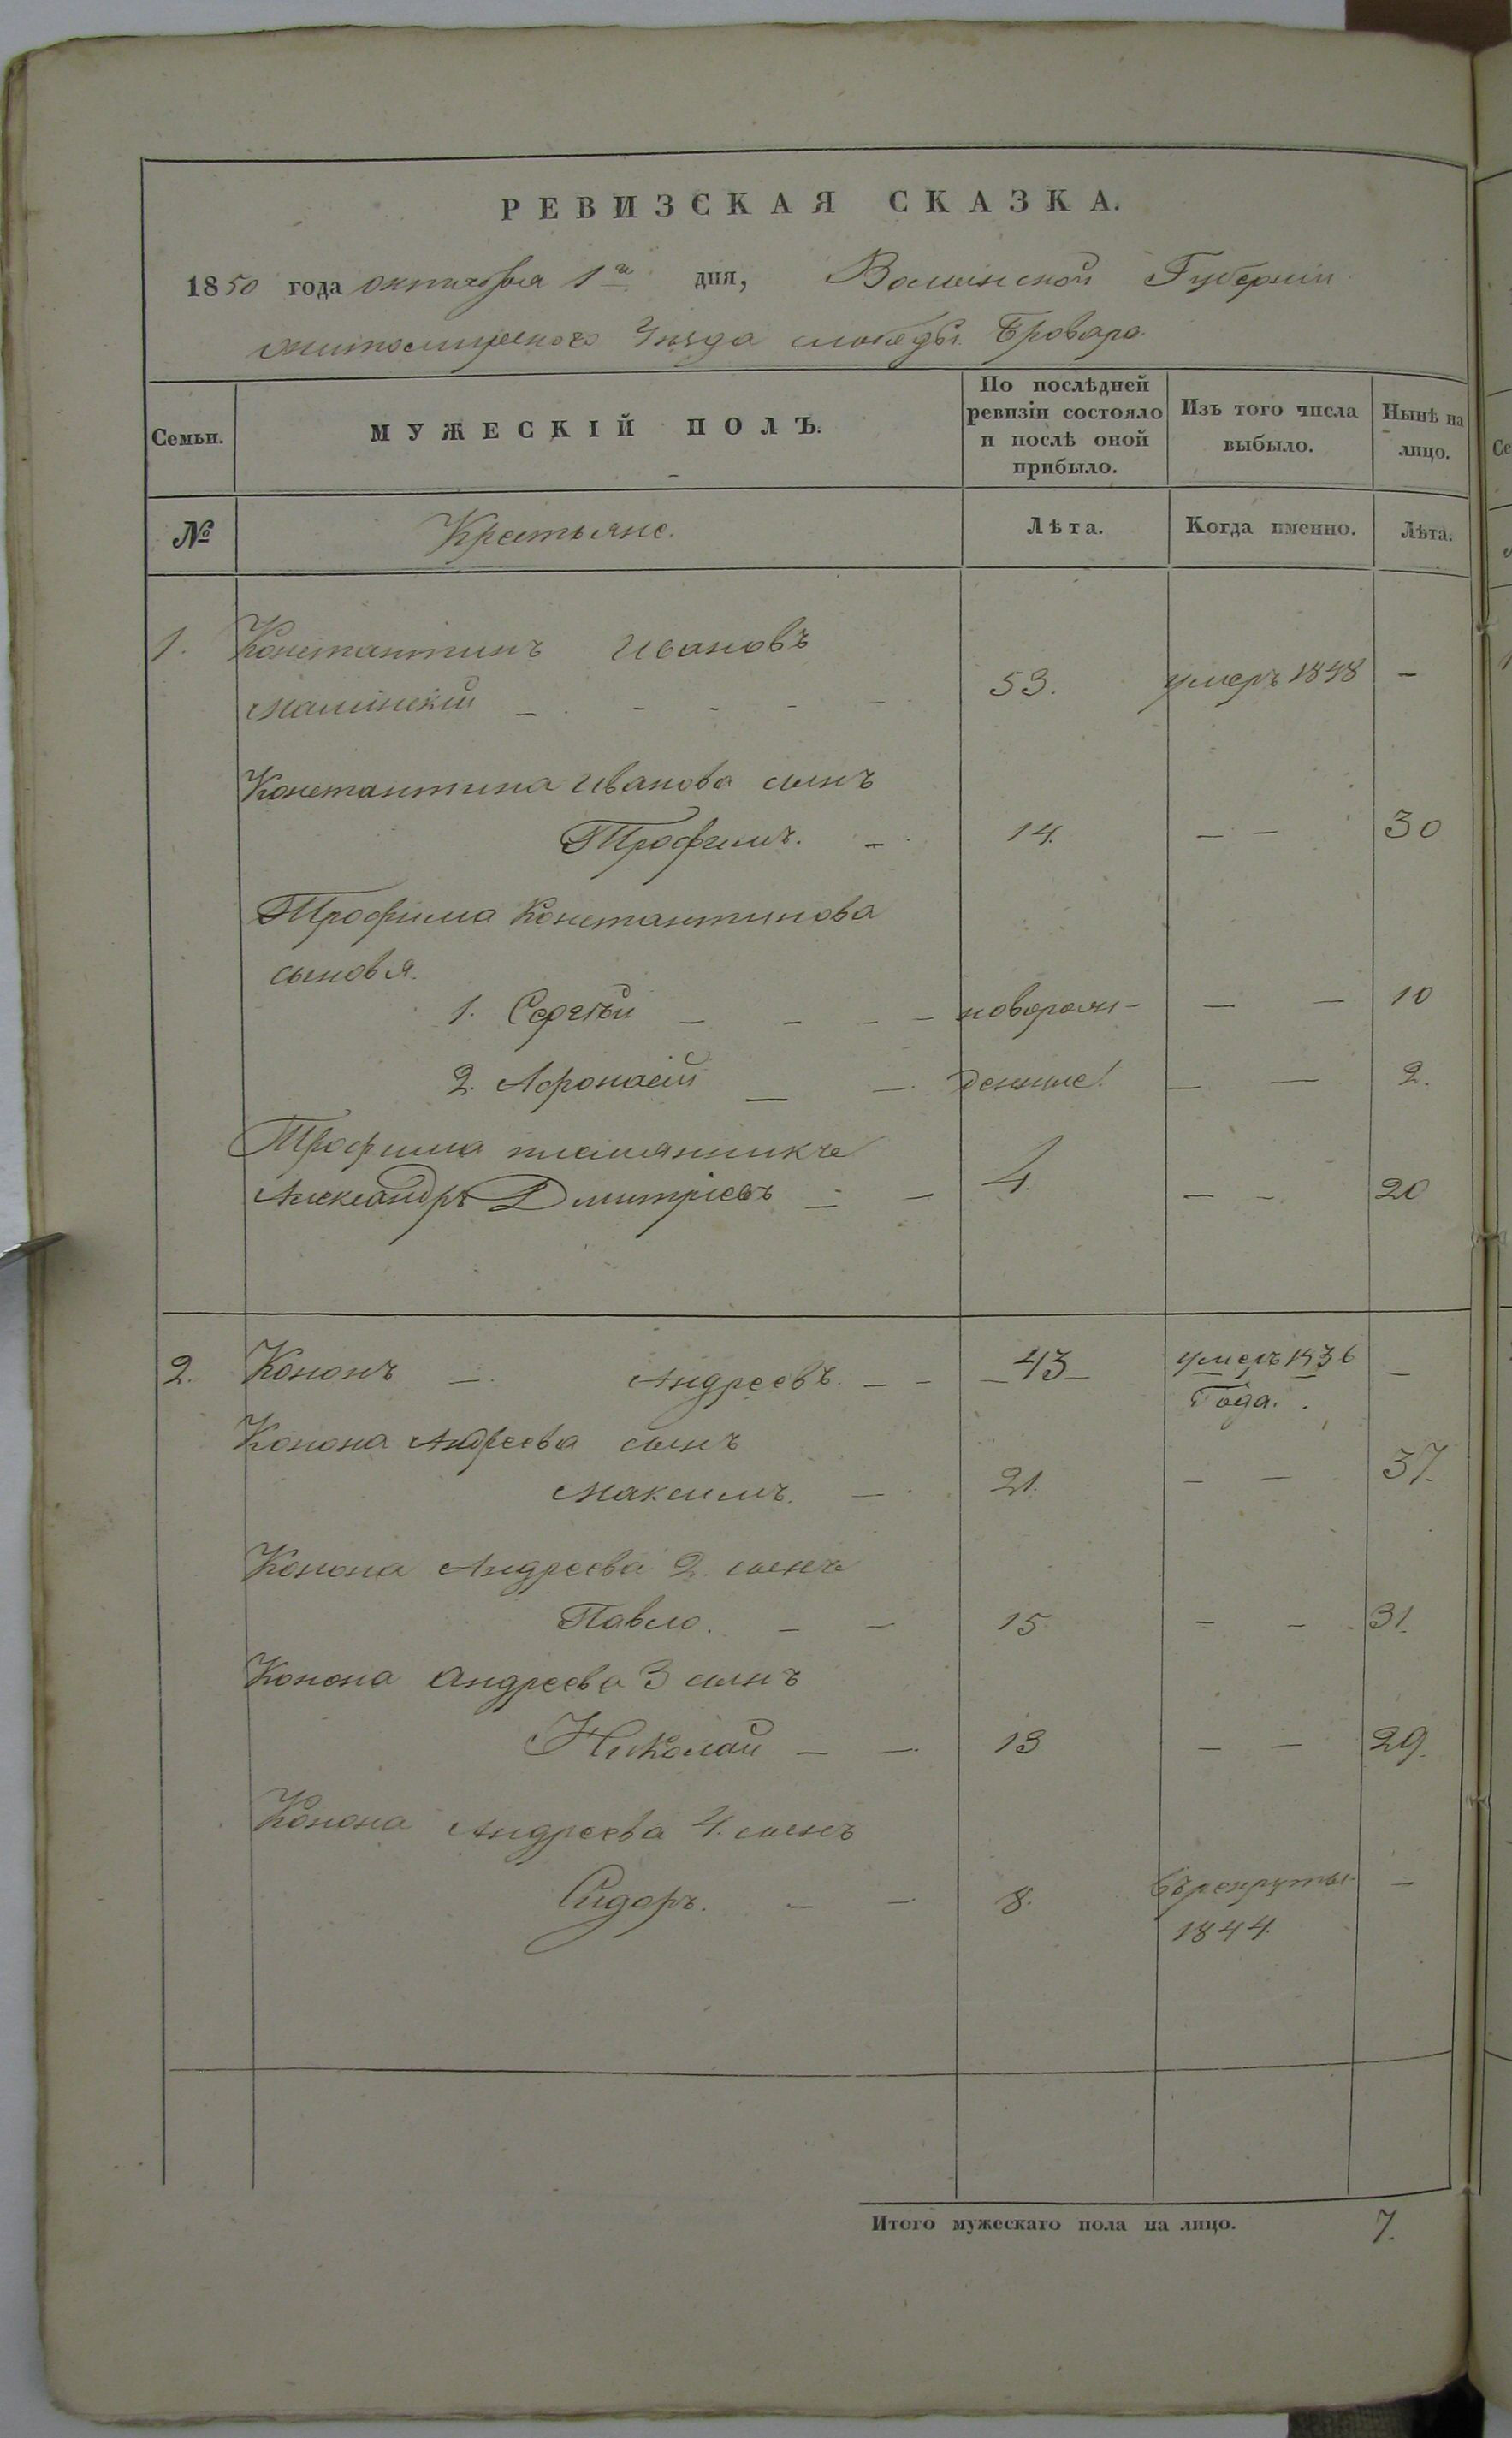 РЕВИЗСКАЯ СКАЗКА.
1850 года октября 1го дня, Волынской Губерніи
Житомирского Уезда слободы Бровара
Семьи.
МУЖЕСКІЙ ПОЛЪ.
По послѣдней
ревизіи состояло
и послѣ оной
прибыло.
Изъ того числа
выбыло.
Нынѣ на
лицо.
№ Крестьяне. Лѣта. Когда именно. Лѣта.
1. Константинъ Ивановъ
53. умеръ 1848 —
Константина Иванова сынъ
Трофимъ. — 14. — — 30
Трофима Константинова
сыновя.
1. Сергѣй — — — — новорож- — — 10
2. Афонасій — — денные. — — 2.
Трофима племянникъ
Александръ Дмитріевъ — — 4. — — 20
2. Кононъ — Андреевъ. — — 43 — умеръ 1836 —
Года.
Конона Андреева сынъ
Максимъ. — 21. — — 37.
Конона Андреева 2. сынъ
Павло. — — 15. — — 31.
Конона Андреева 3 сынъ
Николай — — 13 — — 29.
Конона Андреева 4. сынъ
Сидоръ. — — 8. въ рекруты —
1844.
Итого мужескаго пола на лицо. 7.